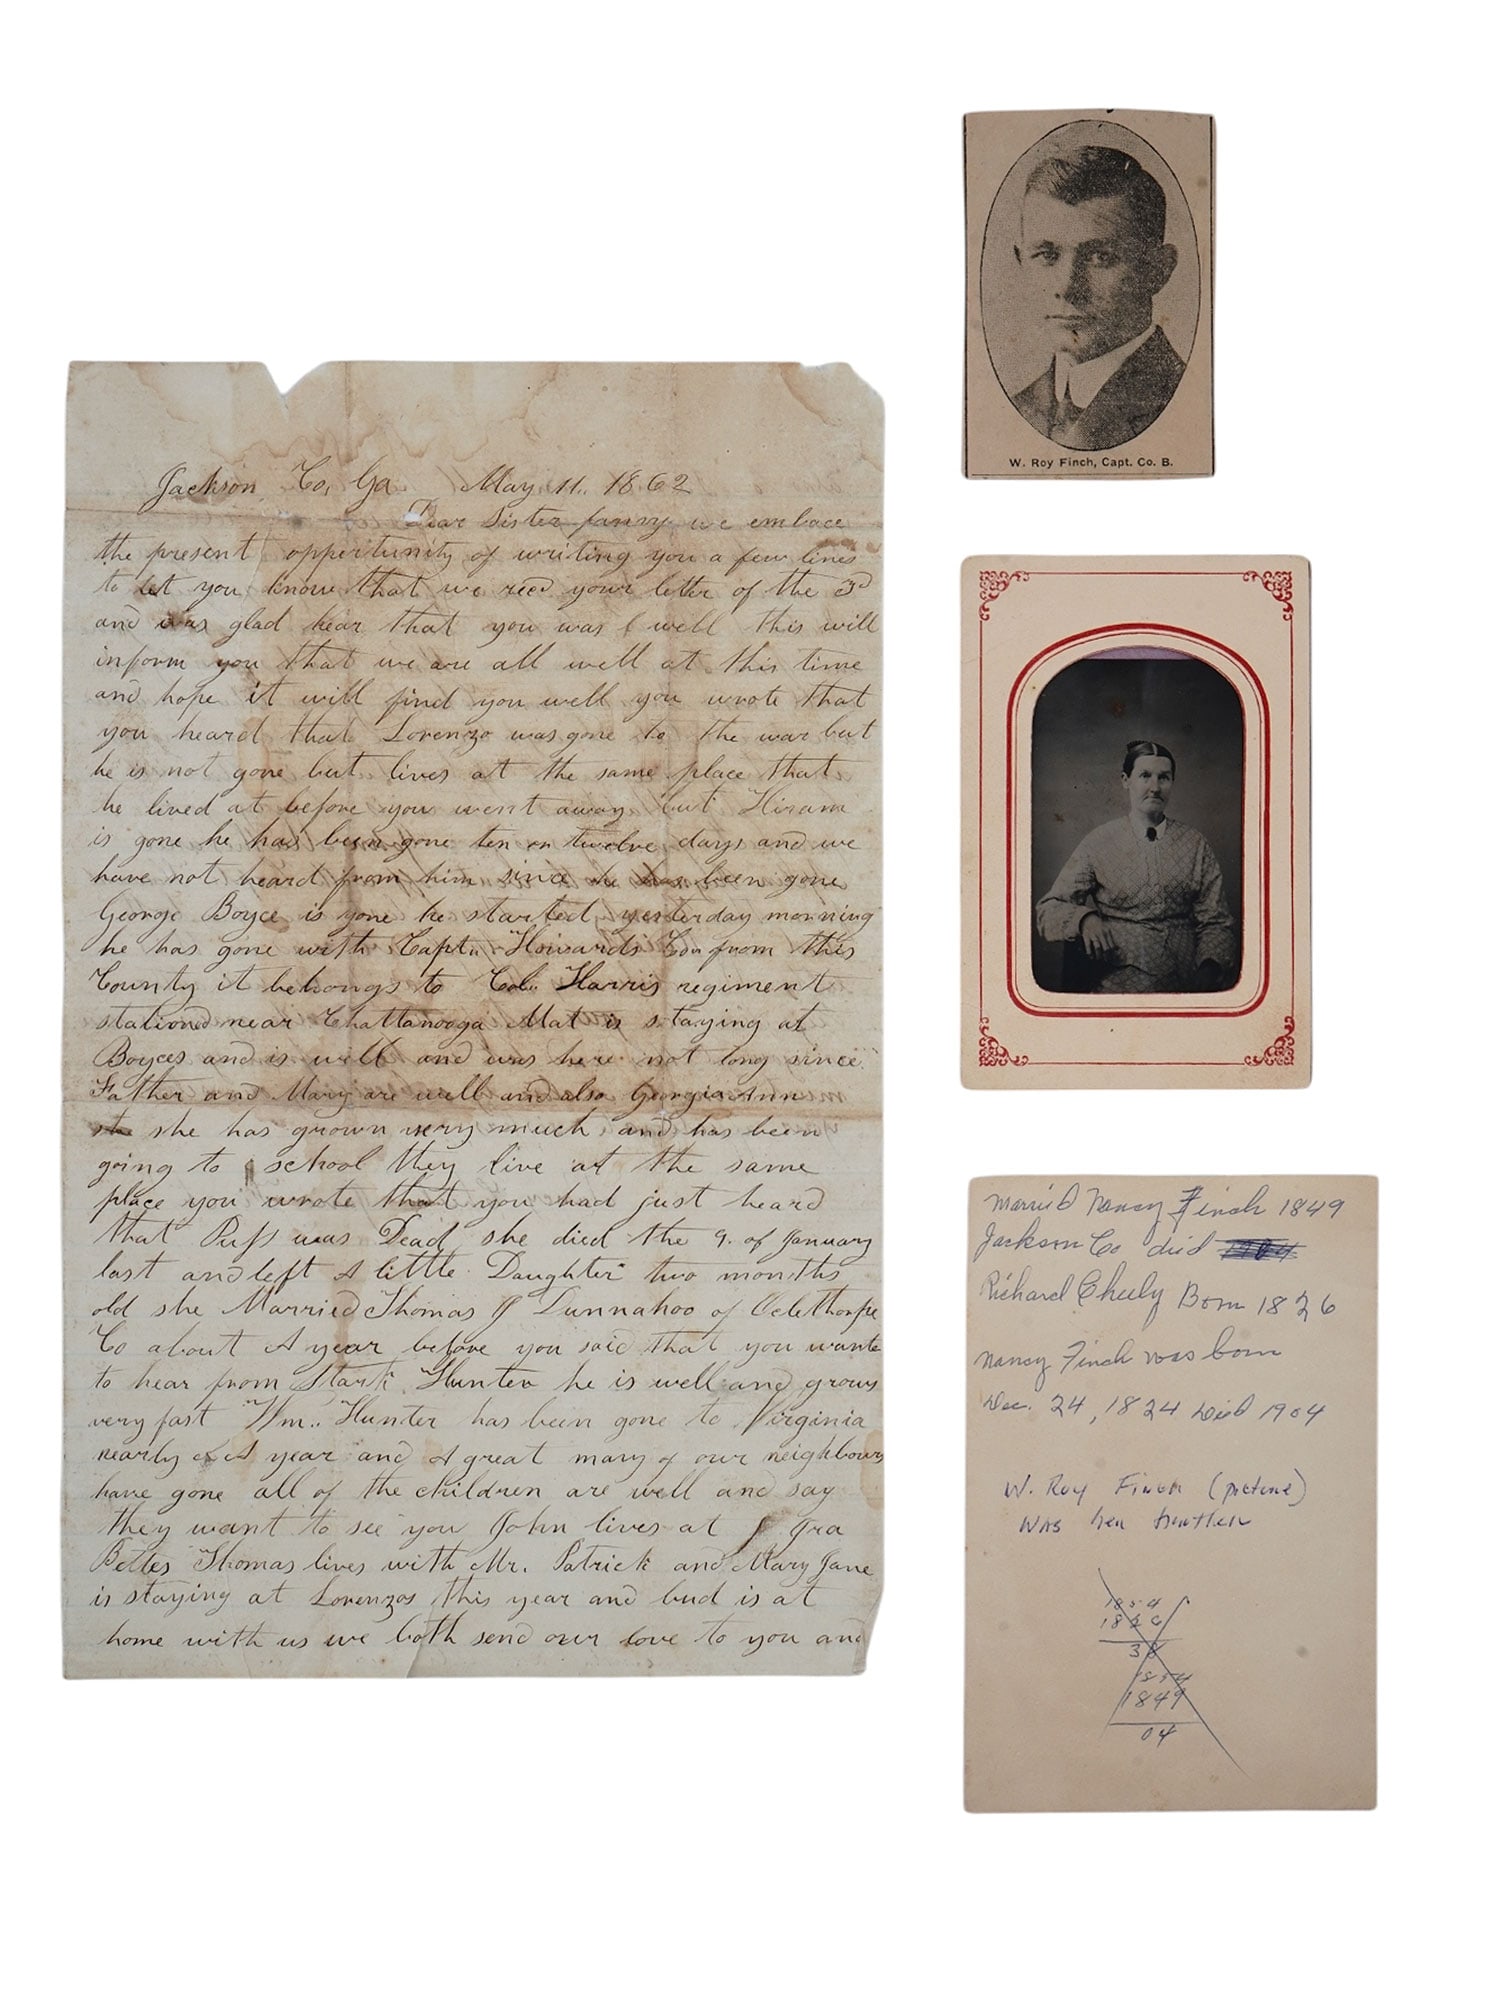 Jackson Co, Ga May 11. 1862
Dear Sister fanny we embace
the present opportunity of writing you a few lines
to let you know that we recd your letter of the 3d
and was glad hear that you was well this will
inform you that we are all well at this time
and hope it will find you well you wrote that
you heard that Lorenzo was gone to the war but
he is not gone but lives at the same place that
he lived at before you went away but Hiram
is gone he has been gone ten or twelve days and we
have not heard from him since he has been gone
George Boyce is gone he started yesterday morning
he has gone with Capt. Howards Co from this
County it belongs to Col. Harris regiment
stationed near Chattanooga Mat is staying at
Boyces and is well and was here not long since
Father and Mary are well and also Georgia Ann
she she has grown very much and has been
going to school they live at the same
place you wrote that you had just heard
that Puss was Dead she died the 9. of January
last and left A little Daughter two months
old she Married Thomas Dunnahoo of Oclethorpe
Co about A year before you said that you wante
to hear from Stark Hunter he is well and grows
very fast Wm.. Hunter has been gone to Virginia
nearly A year and A great many of our neighbours
have gone all of the children are well and say
they want to see you John lives at Gra
Bettes Thomas lives with Mr. Patrick and Mary Jane
is staying at Lorenzos this year and bud is at
home with us we both send our love to you and
W. Roy Finch, Capt. Co. B.
Married Nancy Finch 1849
Jackson Co died 1904
Richard Cheely Born 1826
Nancy Finch was born
Dec. 24, 1824 Died 1904
W. Roy Finch (picture)
was her brother
1854
1826
38
1854
1849
04